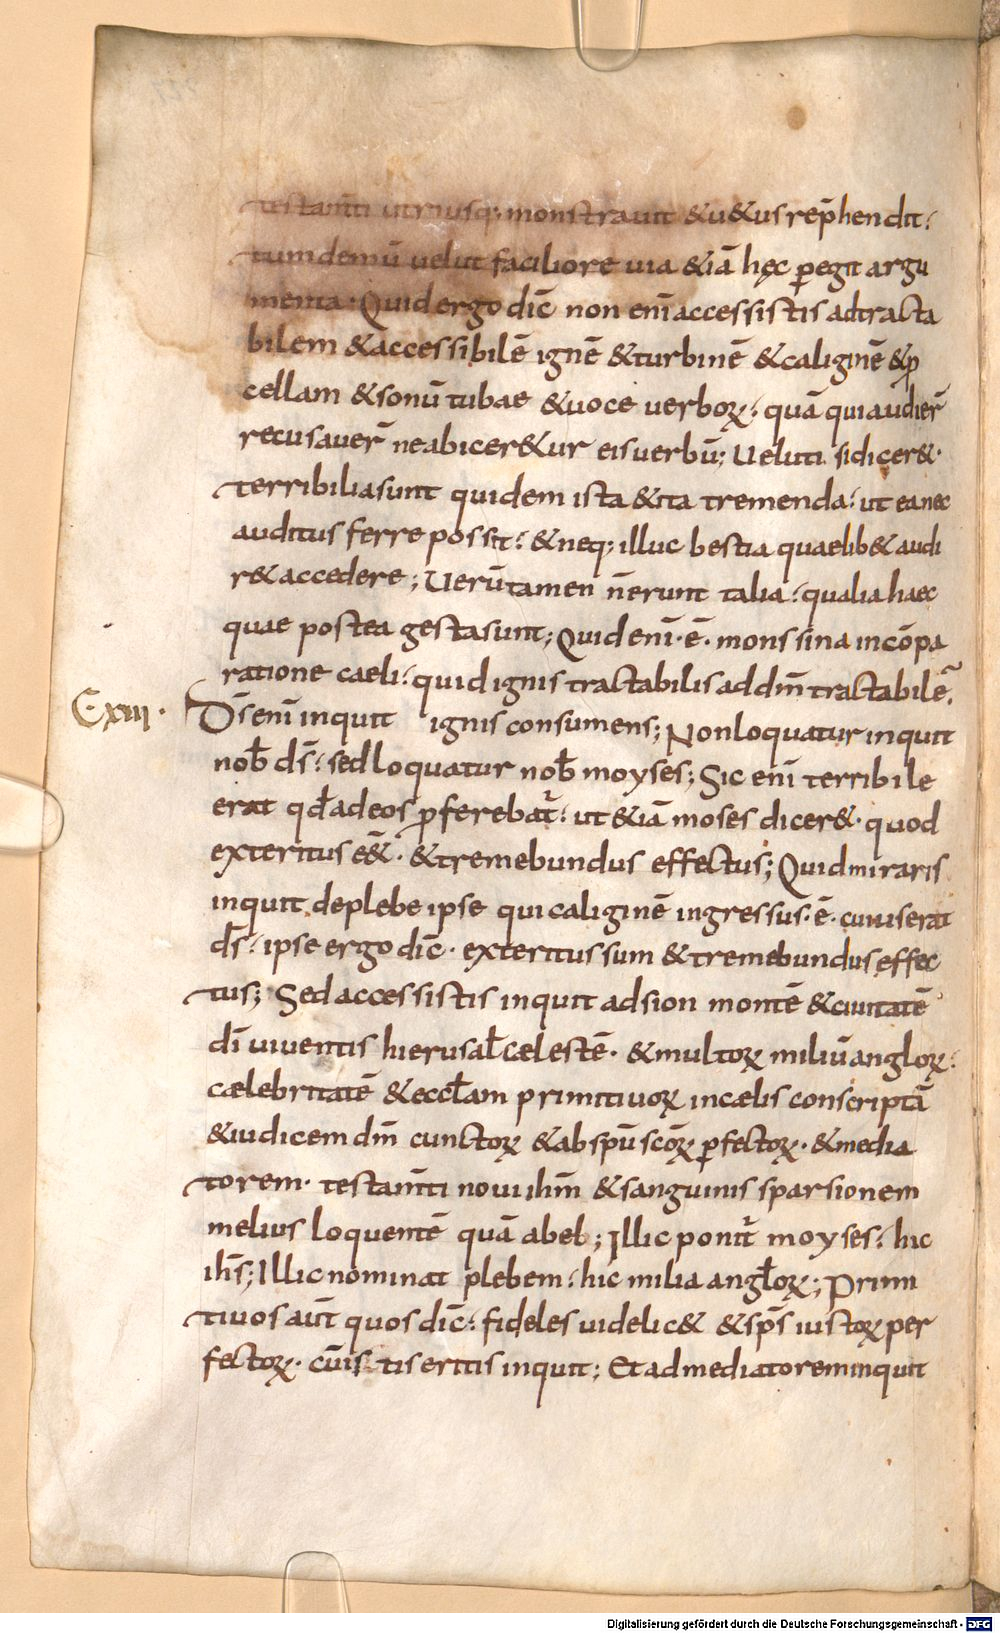 testam̄ti utriusq; monstravit & u&us rep̄hendit.
tum demū velut faciliore via & iā hęc ꝑegit argu
menta. Quid ergo dic̄ non enī accessistis ad tracta
bilem & accessibilē ignē & turbinē & caliginē & ꝓ
cellam & sonū tubae & voce verboꝝ. quā qui audier̄
recusaver̄ ne abicer&ur eis verbū; Veluti si dicer&.
terribilia sunt quidem ista & ita tremenda. ut ea nec
auditus ferre possit. & neq; illuc bestia quaelib& audi
r& accedere; Verūtamen n̄ erunt talia. qualia haec
quae postea gesta sunt; Quid enī. ē. mons sina in cōpa
ratione caeli. quid ignis tractabilis ad dm̄ tractabilē.
Cxiii. Ds̄ enī inquit ignis consumens; Non loquatur inquit
nob̄ ds̄. sed loquatur nob̄ moyses; Sic enī terribile
erat qd̄ adeos ꝓferebat̄. ut & iā moses dicer&. quod
exteritus eē&. & tremebundus effectus; Quid miraris
inquit de plebe ipse qui caliginē ingressus. ē. cui viserat
ds̄. ipse ergo dic̄. exteritus sum & tremebundus effec
tus; Sed accessistis inquit ad sion montē & civitatē
dī viventis hierusal̄ cælestē. & multoꝝ miliū angloꝝ.
cælebritatē & eccl̄am primitivoꝝ in cælis conscriptā
& iudicem dm̄ cunctoꝝ & ab spū scōꝝ ꝑfectoꝝ. & media
torem. testam̄ti novi ihm̄ & sanguinis sparsionem
melius loquentē quā abel; Illic ponit̄ moyses. hic
ihs̄; Illic nominat plebem. hic milia angl̄oꝝ; Primi
tivos aut̄ quos dic̄. fideles videlic& & sps̄ iustoꝝ per
fectoꝝ. cū is tis eritis inquit; Et ad mediatorem inquit
Digitalisierung gefördert durch die Deutsche Forschungsgemeinschaft - DFG